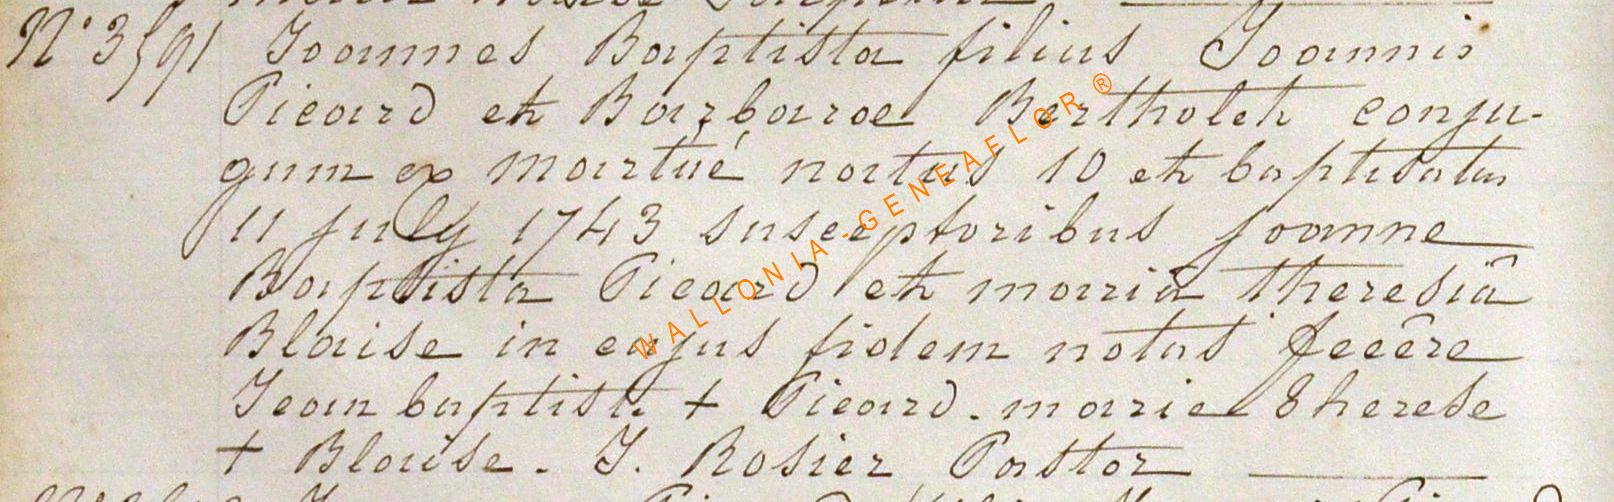 N° 3591 Joannes Baptista filius Joannis
Picard et Barbarae Bertholet conju-
gum ex martué natus 10 et baptisatus
11 july 1743 susceptoribus joanne
Baptista Picard et mariâ theresiâ
Blaise in cujus fidem notas fecêre
Jean baptiste + Picard. marie therese
+ Blaise. J. Rosier Pastor
WALLONIA-GENEAFLOR®